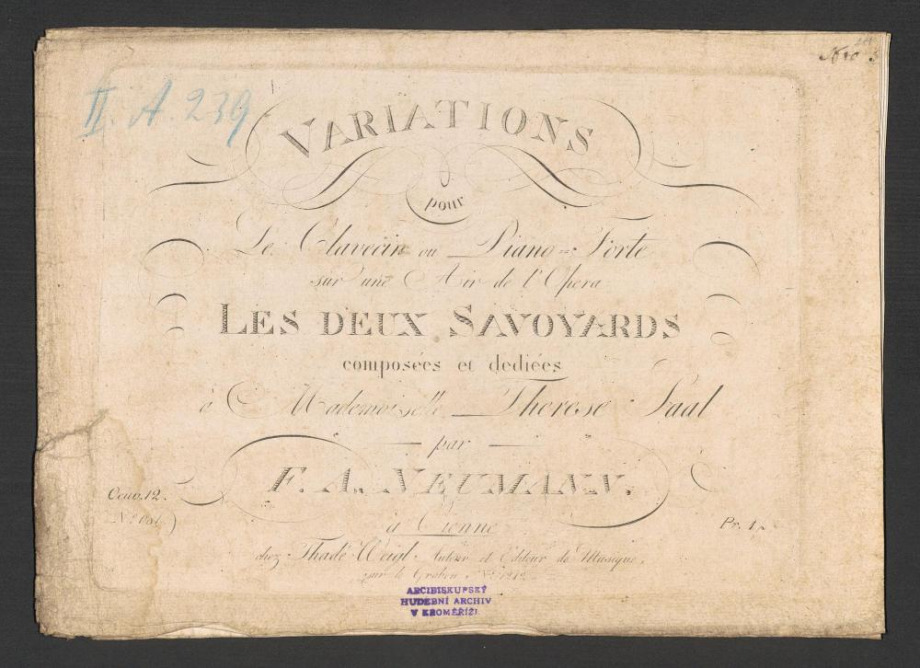 II. A. 239
VARIATIONS
pour
Le Clavecin ou Piano=Forte
sur une Air de l'Opera
LES DEUX SAVOYARDS
composées et dediées
à Mademoiselle Therese Saal
par
F. A. NEUMANN.
Oeuv. 12.
à Vienne
chez Thadé Weigl. Auteur et Editeur de Musique,
sur le Graben
ARCIBISKUPSKÝ
HUDEBNÍ ARCHIV
V KROMĚŘÍŽI